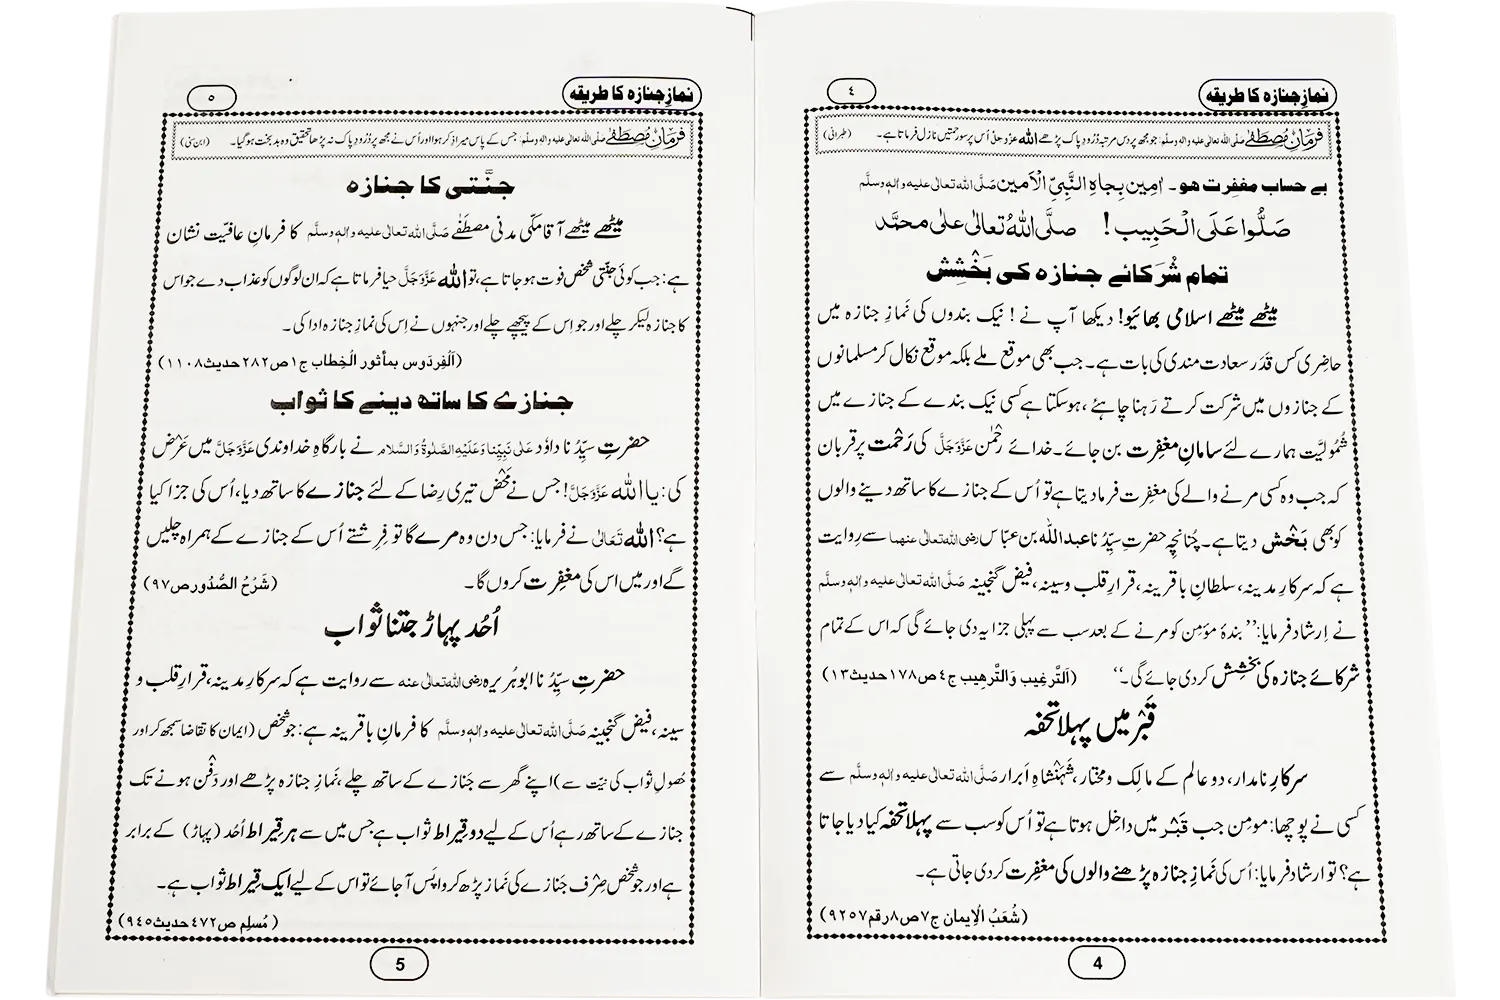 نمازِ جنازہ کا طریقہ
٤
فرمانِ مصطفٰے صلی اللہ تعالیٰ علیہ والہ وسلم: جو مجھ پر دس مرتبہ دُرُود پاک پڑھے اللہ عزوجل اُس پر سو رحمتیں نازل فرماتا ہے۔ (طبرانی)
بے حساب مغفِرت ہو۔ اٰمِین بِجاہِ النَّبِیِّ الْاَمین صَلَّی اللہ تعالیٰ علیہ والہٖ وسلَّم
صَلُّوا عَلَی الْحَبِیب! صلَّی اللہُ تعالیٰ علیٰ محمَّد
تمام شُرَکائے جنازہ کی بَخْشِش
میٹھے میٹھے اسلامی بھائیو! دیکھا آپ نے! نیک بندوں کی نَمازِ جنازہ میں
حاضِری کس قَدَر سعادت مندی کی بات ہے۔ جب بھی موقع ملے بلکہ موقع نکال کر مسلمانوں
کے جنازوں میں شرکت کرتے رَہنا چاہئے، ہوسکتا ہے کسی نیک بندے کے جنازے میں
شُمُولیَّت ہمارے لئے سامانِ مغفِرت بن جائے۔ خدائے رَحْمٰن عَزَّوَجَلَّ کی رَحْمت پر قربان
کہ جب وہ کسی مرنے والے کی مغفِرت فرمادیتا ہے تو اُس کے جنازے کا ساتھ دینے والوں
کو بھی بَخْش دیتا ہے۔ چُنانچِہ حضرتِ سیِّدُنا عبداللہ بن عبّاس رضی اللہ تعالیٰ عنہما سے رِوایت
ہے کہ سرکارِ مدینہ، سلطانِ باقرینہ، قرارِ قلب وسینہ، فیض گنجینہ صَلَّی اللہ تعالیٰ علیہ والہٖ وسلَّم
نے اِرشاد فرمایا: ’’بندۂ مؤمِن کو مرنے کے بعد سب سے پہلی جزا یہ دی جائے گی کہ اس کے تمام
شرکائے جنازہ کی بخشِش کردی جائے گی۔‘‘ (اَلتَّرغِیب وَالتَّرھِیب ج٤ ص١٧٨ حدیث١٣)
قَبْر میں پہلا تحفہ
سرکارِ نامدار، دو عالم کے مالِک ومختار، شَہَنْشاہِ اَبرار صَلَّی اللہ تعالیٰ علیہ والہٖ وسلَّم سے
کسی نے پوچھا: مومِن جب قَبْر میں داخِل ہوتا ہے تو اُس کو سب سے پہلا تحفہ کیا دیا جاتا
ہے؟ تو ارشاد فرمایا: اُس کی نَمازِ جنازہ پڑھنے والوں کی مغفِرت کردی جاتی ہے۔
(شُعَبُ الْاِیمان ج٧ ص٨ رقم ٩٢٥٧)
4
نمازِ جنازہ کا طریقہ
٥
فرمانِ مصطفٰے صلی اللہ تعالیٰ علیہ والہ وسلم: جس کے پاس میرا ذکر ہوا اور اُس نے مجھ پر دُرُودِ پاک نہ پڑھا تحقیق وہ بدبخت ہوگیا۔ (ابن سنی)
جنّتی کا جنازہ
میٹھے میٹھے آقا مکّی مدنی مصطَفٰے صَلَّی اللہ تعالیٰ علیہ والہٖ وسلَّم کا فرمانِ عافیّت نشان
ہے: جب کوئی جنّتی شخص فوت ہوجاتا ہے، تو اللہ عَزَّوَجَلَّ حیا فرماتا ہے کہ ان لوگوں کو عذاب دے جو اس
کا جنازہ لیکر چلے اور جو اِس کے پیچھے چلے اور جنہوں نے اِس کی نمازِ جنازہ ادا کی۔
(اَلْفِردَوس بمأثور الْخِطاب ج١ ص٢٨٢ حدیث١١٠٨)
جنازے کا ساتھ دینے کا ثواب
حضرتِ سیِّدُنا داوٗد عَلٰی نَبِیِّنا وَعَلَیْہِ الصَّلٰوۃُ وَالسَّلام نے بارگاہِ خداوندی عَزَّوَجَلَّ میں عَرْض
کی: یااللہ عَزَّوَجَلَّ! جس نے مَحْض تیری رِضا کے لئے جنازے کا ساتھ دیا، اُس کی جزا کیا
ہے؟ اللہ تَعَالیٰ نے فرمایا: جس دن وہ مرے گا تو فِرِشتے اُس کے جنازے کے ہمراہ چلیں
گے اور میں اس کی مغفِرت کروں گا۔ (شَرْحُ الصُّدُور ص٩٧)
اُحُد پہاڑ جتنا ثواب
حضرتِ سیِّدُنا ابو ہُریرہ رضی اللہ تعالیٰ عنہ سے روایت ہے کہ سرکارِ مدینہ، قرارِ قلب و
سینہ، فیض گنجینہ صَلَّی اللہ تعالیٰ علیہ والہٖ وسلَّم کا فرمانِ باقرینہ ہے: جو شخص (ایمان کا تقاضا سمجھ کر اور
حُصولِ ثواب کی نیّت سے) اپنے گھر سے جنازے کے ساتھ چلے، نَمازِ جنازہ پڑھے اور دَفْن ہونے تک
جنازے کے ساتھ رہے اُس کے لیے دو قِیراط ثواب ہے جس میں سے ہر قِیراط اُحُد (پہاڑ) کے برابر
ہے اور جو شخص صِرْف جنازے کی نَماز پڑھ کر واپَس آجائے تو اس کے لیے ایک قِیراط ثواب ہے۔
(مُسلِم ص٤٧٢ حدیث٩٤٥)
5